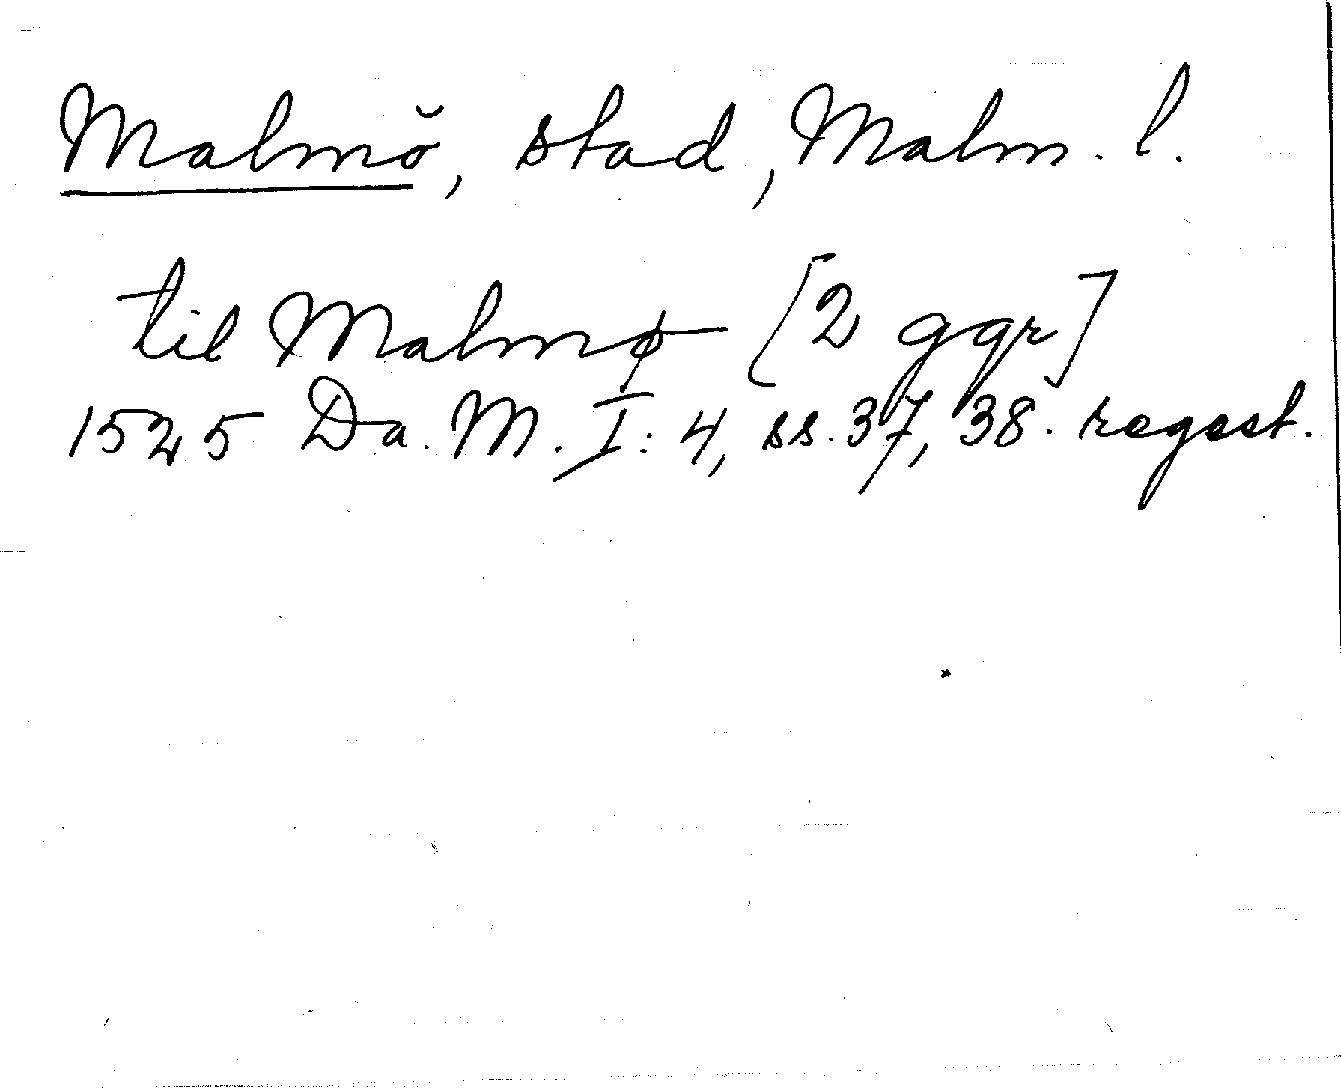 Malmö, stad, Malm. l.
til Malmø [2 ggr]
1525 Da. M. I: 4, ss. 37, 38. regest.